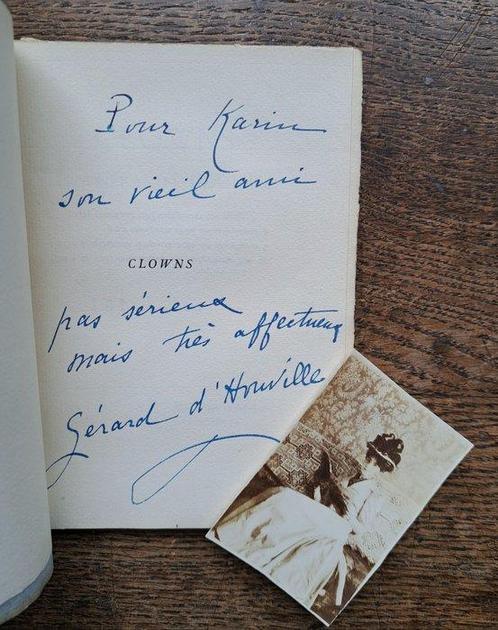 Pour Karin
son vieil ami
CLOWNS
pas sérieux
mais très affectueux
Gérard d'Houville